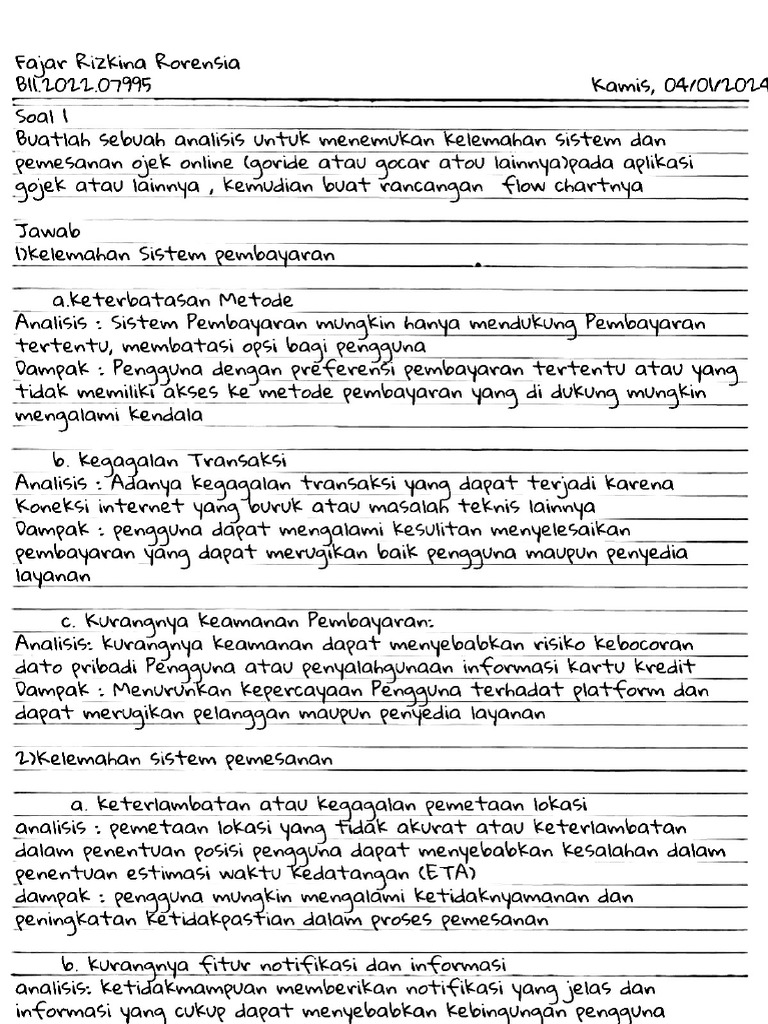 Fajar Rizkina Rorensia
B11.2022.07995
Kamis, 04/01/2024
Soal 1
Buatlah sebuah analisis untuk menemukan kelemahan sistem dan
pemesanan ojek online (goride atau gocar atou lainnya)pada aplikasi
gojek atau lainnya , kemudian buat rancangan flow chartnya
Jawab
1)kelemahan Sistem pembayaran
a.keterbatasan Metode
Analisis : Sistem Pembayaran mungkin hanya mendukung Pembayaran
tertentu, membatasi opsi bagi pengguna
Dampak : Pengguna dengan preferensi pembayaran tertentu atau yang
tidak memiliki akses ke metode pembayaran yang di dukung mungkin
mengalami kendala
b. kegagalan Transaksi
Analisis : Adanya kegagalan transaksi yang dapat terjadi karena
Koneksi internet yang buruk atau masalah teknis lainnya
Dampak : pengguna dapat mengalami kesulitan menyelesaikan
pembayaran yang dapat merugikan baik pengguna maupun penyedia
layanan
c. Kurangnya Keamanan Pembayaran:
Analisis: kurangnya keamanan dapat menyebabkan risiko kebocoran
dato pribadi Pengguna atau penyalahgunaan informasi kartu kredit
Dampak : Menurunkan kepercayaan Pengguna terhadat platform dan
dapat merugikan pelanggan maupun penyedia layanan
2)Kelemahan sistem pemesanan
a. keterlambatan atau kegagalan pemetaan lokasi
analisis : pemetaan lokasi yang tidak akurat atau keterlambatan
dalam penentuan posisi pengguna dapat menyebabkan kesalahan dalam
penentuan estimasi waktu kedatangan (ETA)
dampak : pengguna mungkin mengalami ketidaknyamanan dan
peningkatan ketidakpastian dalam proses pemesanan
b. kurangnya fitur notifikasi dan informasi
analisis: ketidakmampuan memberikan notifikasi yang jelas dan
informasi yang cukup dapat menyebabkan kebingungan pengguna